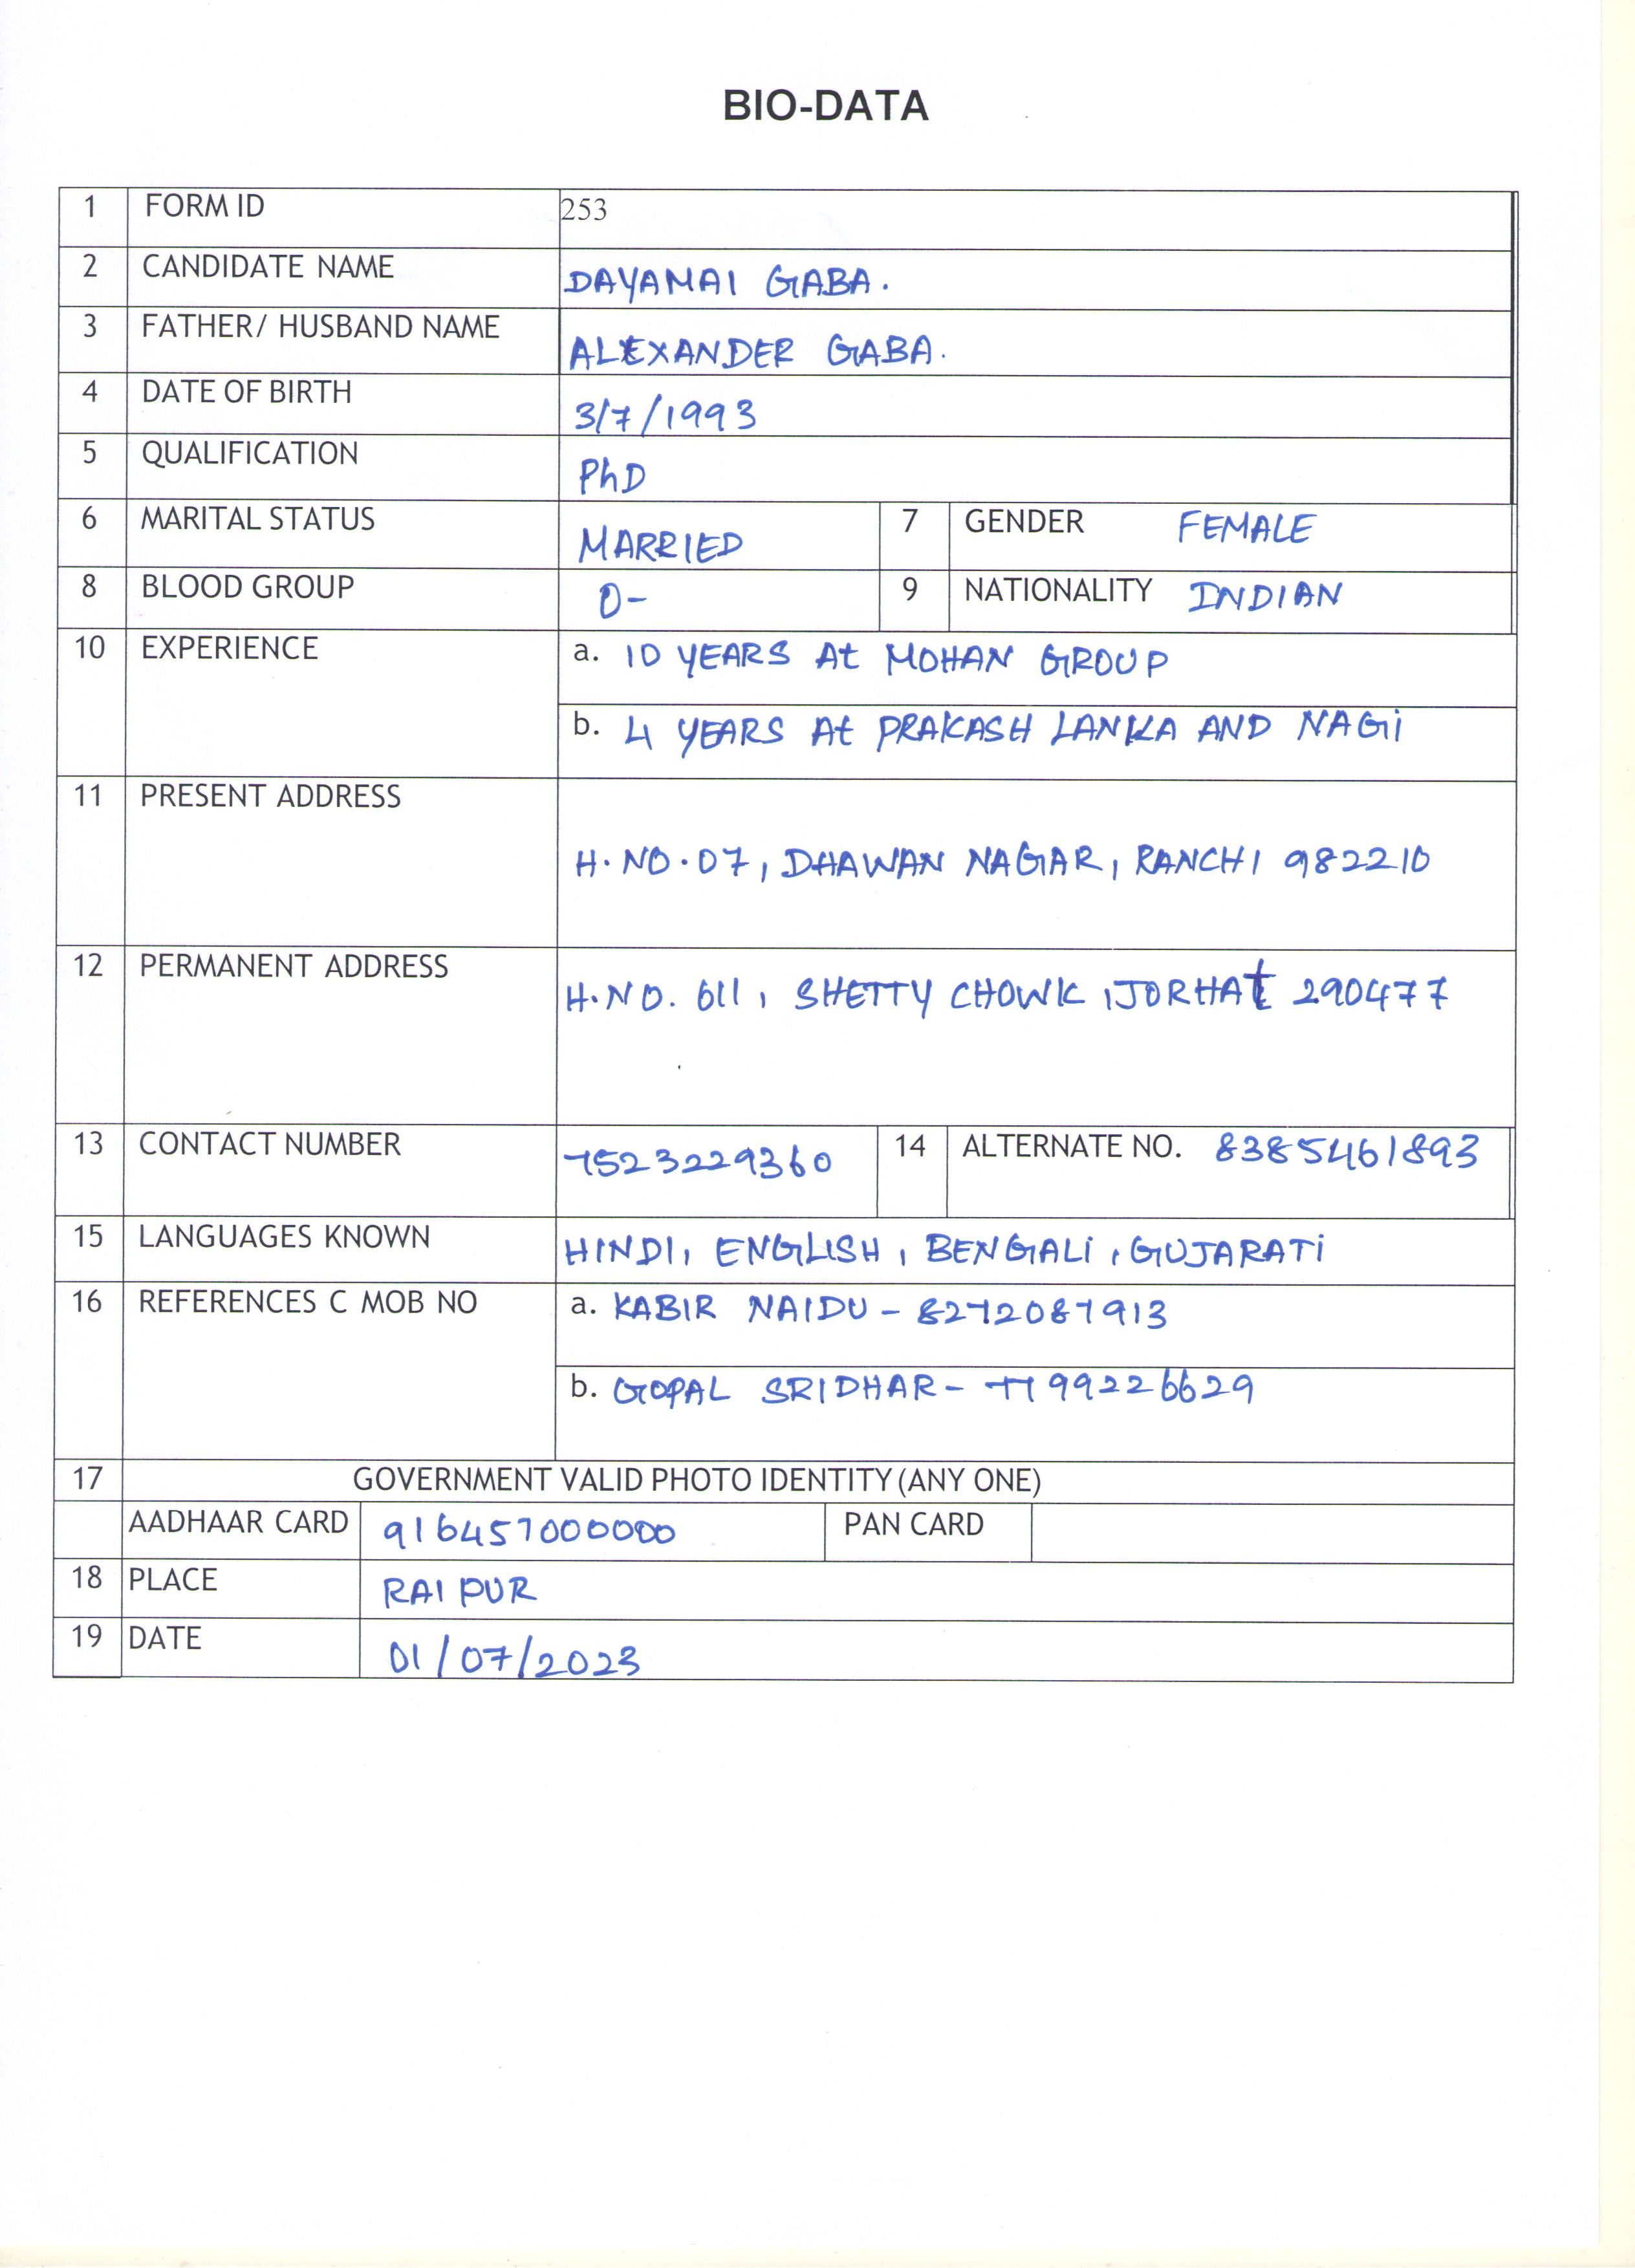 BIO-DATA
1 FORM ID 253
2 CANDIDATE NAME DAYAMAI GABA.
3 FATHER/ HUSBAND NAME ALEXANDER GABA.
4 DATE OF BIRTH 3/7/1993
5 QUALIFICATION PhD
6 MARITAL STATUS MARRIED 7 GENDER FEMALE
8 BLOOD GROUP O- 9 NATIONALITY INDIAN
10 EXPERIENCE a. 10 YEARS At MOHAN GROUP
b. 4 YEARS At PRAKASH LANKA AND NAGi
11 PRESENT ADDRESS
H.NO.07, DHAWAN NAGAR, RANCHI 982210
12 PERMANENT ADDRESS
H.NO. 611, SHETTY CHOWK ,JORHAt 290477
13 CONTACT NUMBER 7523229360 14 ALTERNATE NO. 8385461893
15 LANGUAGES KNOWN HINDI, ENGLISH, BENGALi, GUJARATi
16 REFERENCES C MOB NO a. KABIR NAIDU - 8272087913
b. GOPAL SRIDHAR - 7799226629
17 GOVERNMENT VALID PHOTO IDENTITY (ANY ONE)
AADHAAR CARD 916457000000 PAN CARD
18 PLACE RAIPUR
19 DATE 01/07/2023